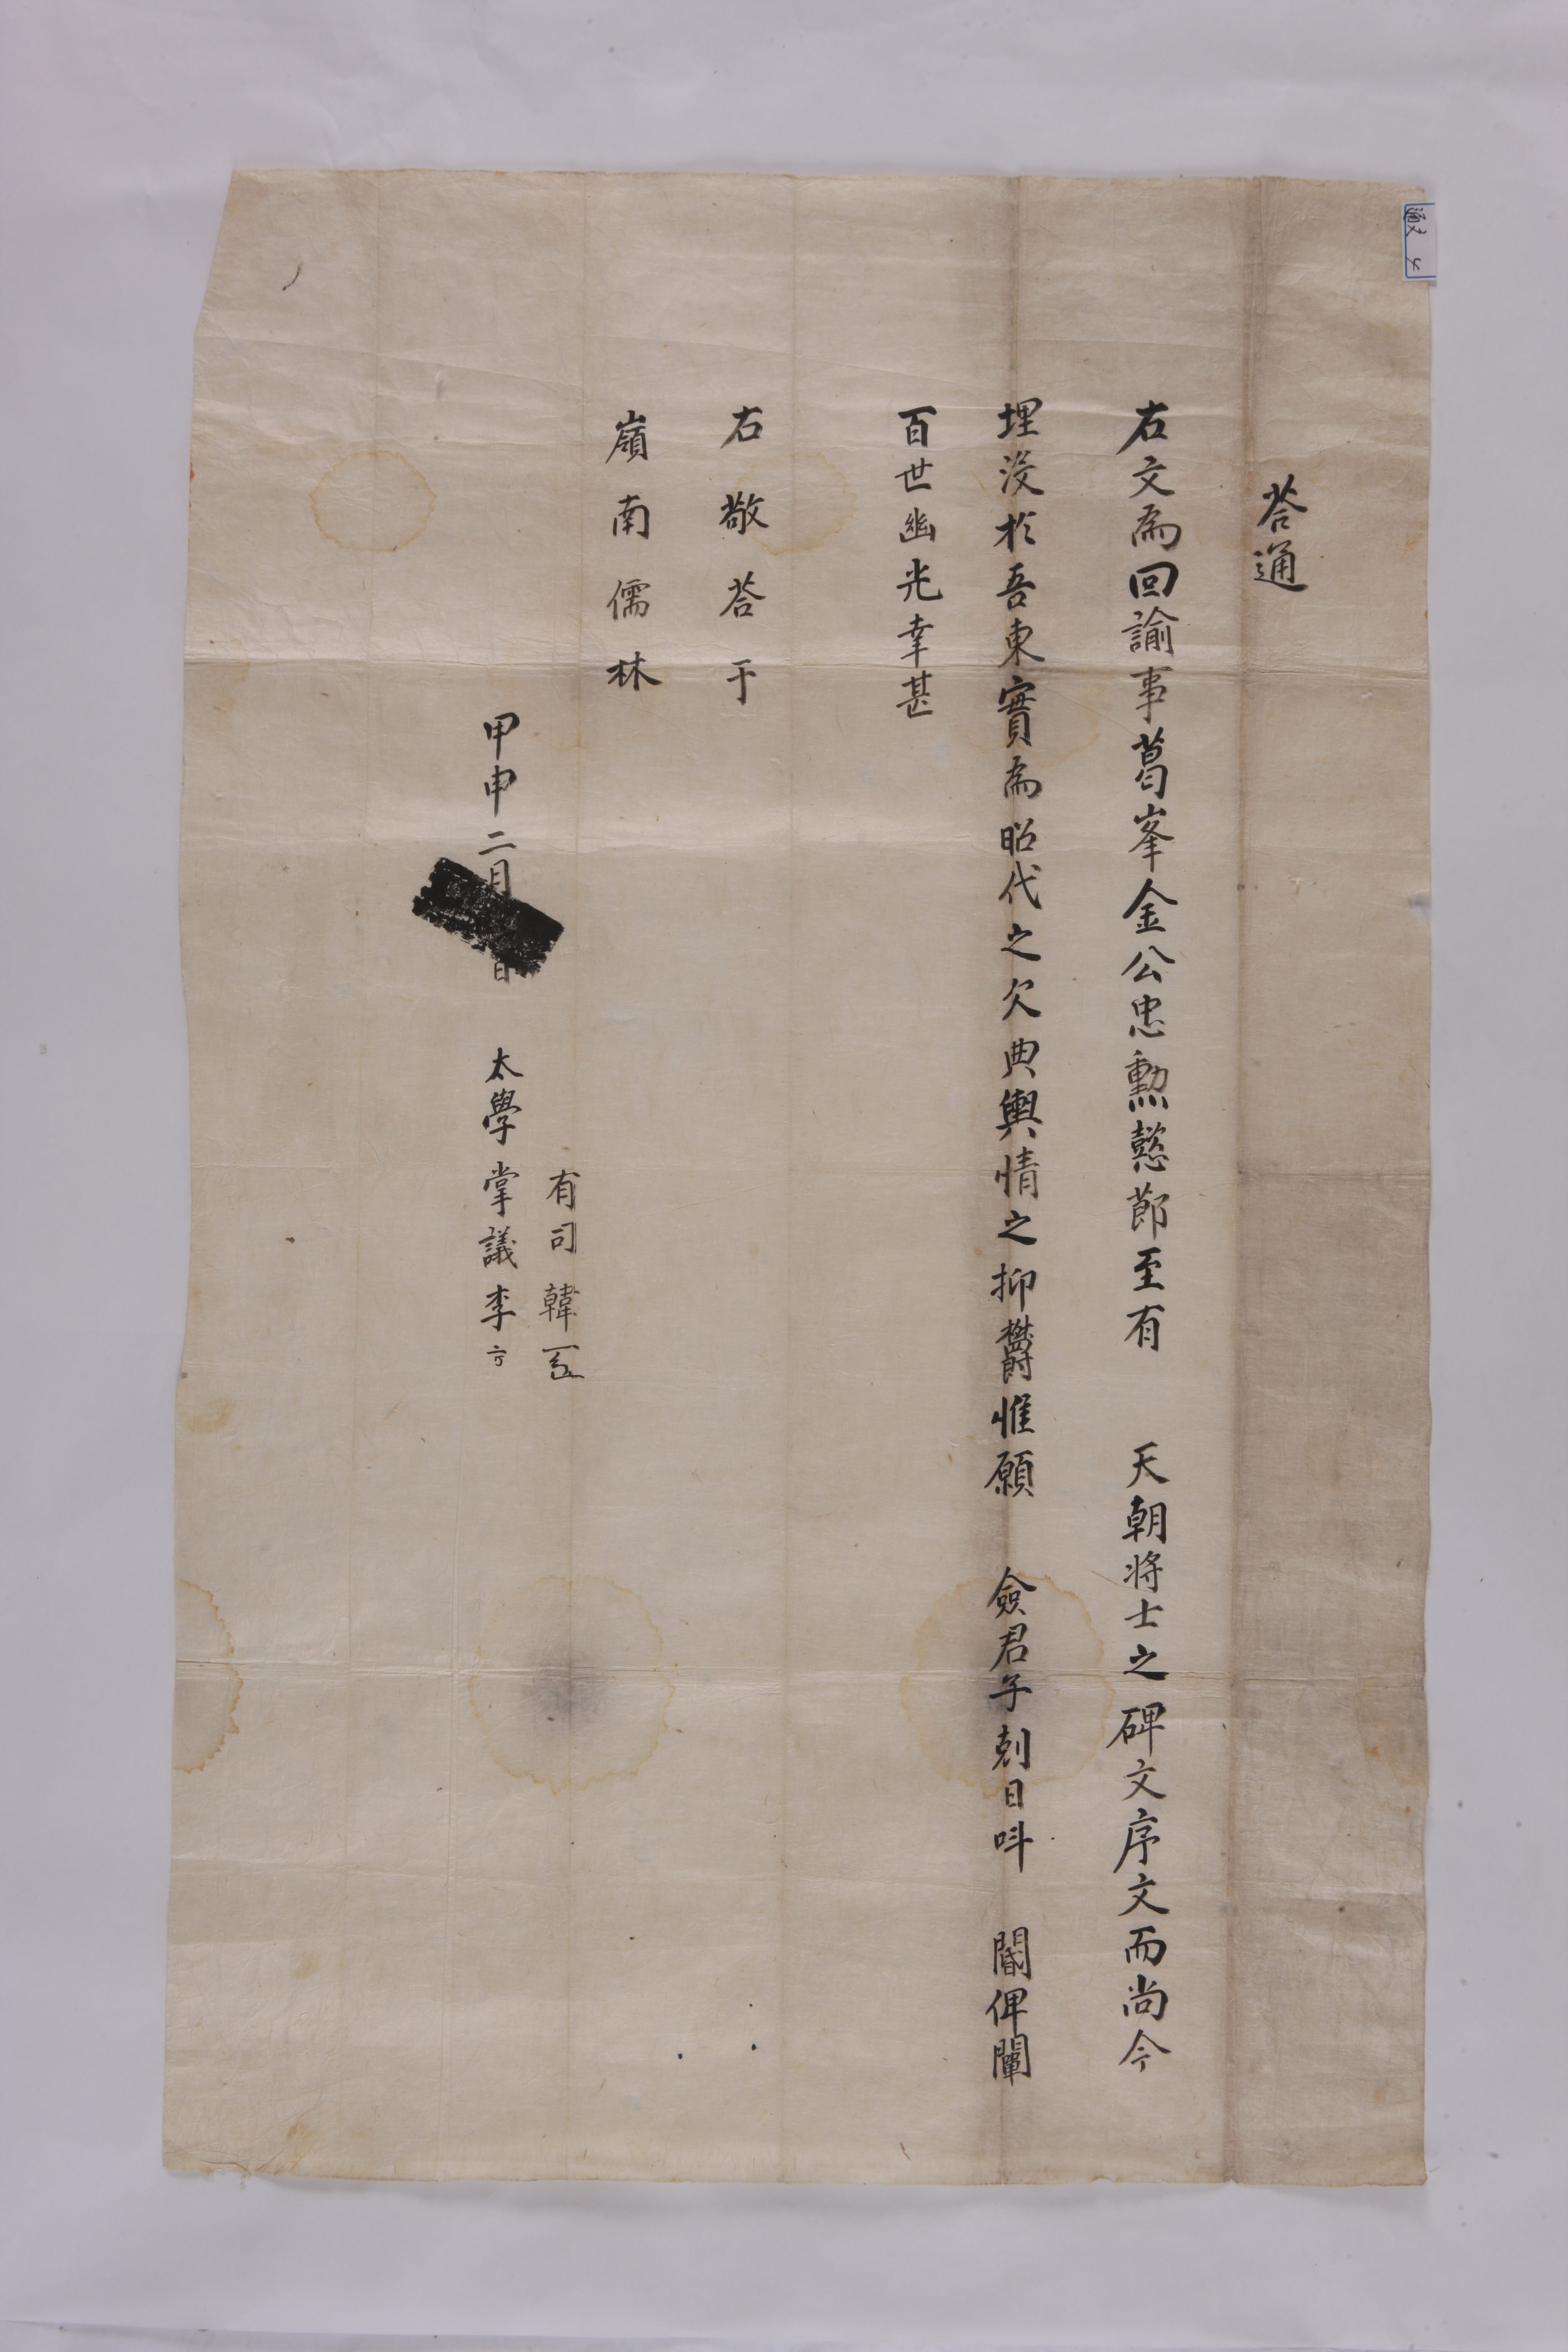 通文 4
答通
右文爲回諭事葛峯金公忠勳懿節至有 天朝將士之碑文序文而尚今
埋沒於吾東實爲昭代之欠典輿情之抑欝惟願 僉君子剋日呌 閽俾闡
百世幽光幸甚
右敬答于
嶺南儒林
甲申二月 日 太學掌議李
有司韓